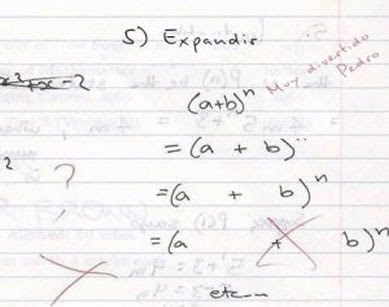 5) Expandir
Muy divertido
Pedro
(a+b)ⁿ
= (a + b)ⁿ
?
=(a + b)ⁿ
= (a + b)ⁿ
etc